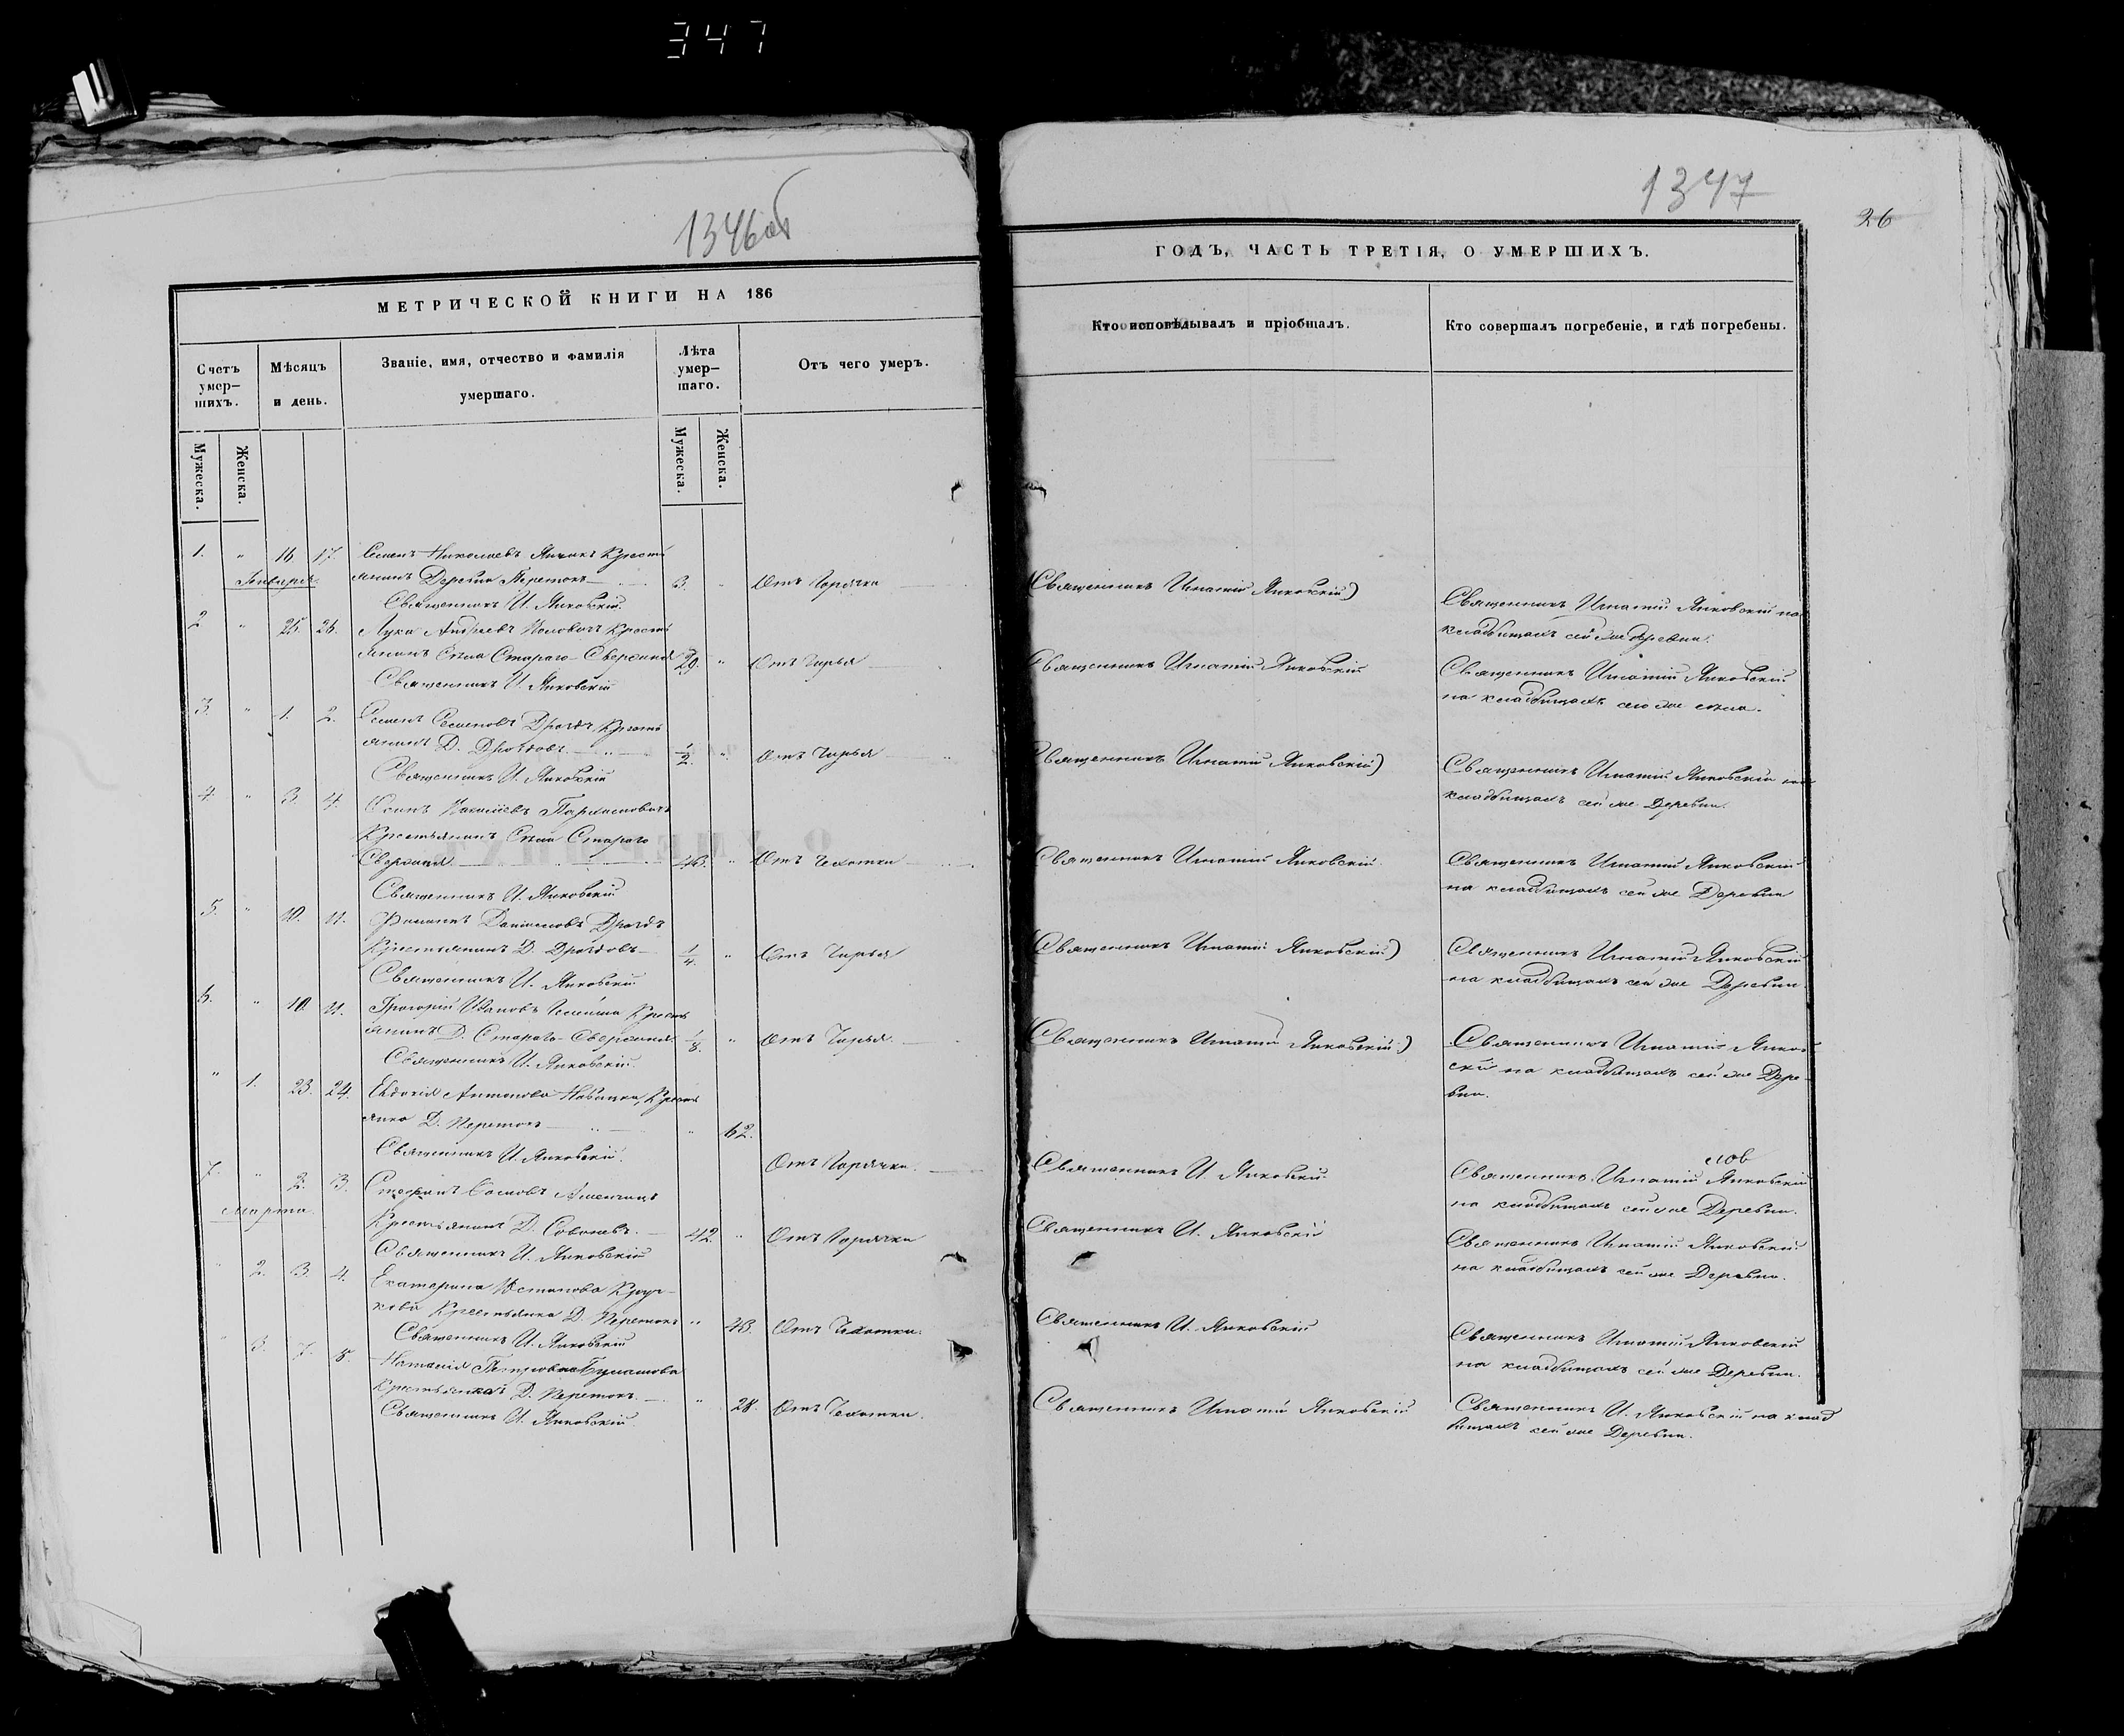 347
1346об
МЕТРИЧЕСКОЙ КНИГИ НА 186
Счетъ умер-шихъ.
Мѣсяцъ и день.
Званіе, имя, отчество и фамилія умершаго.
Лѣта умер-шаго.
Отъ чего умеръ.
Мужеска.
Женска.
Мужеска.
Женска.
1. " 16. 17. Семенъ Николаевъ Кресть
Января
янинъ Деревни Перетокъ 3. " Отъ Горячки
Священникъ И. Янковскій.
2 " 25. 26. Лука Андреевъ Кресть
янинъ Села Стараго-Свержня 29. " Отъ Чирья
Священникъ И. Янковскій
3. " 1. 2. Семенъ Семеновъ Дроздъ Кресть
янинъ Д. Дроздовъ 1/2. " Отъ Чирья
Священникъ И. Янковскій
4. " 3. 4. Осипъ
Крестьянинъ Села Стараго
Свержня 46. " Отъ Чехотки
Священникъ И. Янковскій
5. " 10. 11. Филиппъ Дроздъ
Крестьянинъ Д. Дроздовъ 1/4. " Отъ Чирья
Священникъ И. Янковскій
6. " 10. 11. Григорій Ивановъ Кресть
янинъ Д. Стараго-Свержня 1/8. " Отъ Чирья
Священникъ И. Янковскій.
" 1. 23. 24. Евдокія Антонова Кресть
янка Д. Перетокъ " 62.
Священникъ И. Янковскій. Отъ Горячки.
7. " 2. 3. Стефанъ
Марта.
Крестьянинъ Д. 42. " Отъ Горячки
Священникъ И. Янковскій
" 2. 3. 4. Екатерина Круч-
кова Крестьянка Д. Перетокъ " 46. Отъ Чехотки.
Священникъ И. Янковскій
" 3. 7. 8. Наталія Петрова
Крестьянка Д. Перетокъ " 28. Отъ Чехотки.
Священникъ И. Янковскій
1347
26
ГОДЪ, ЧАСТЬ ТРЕТІЯ, О УМЕРШИХЪ.
Кто исповѣдывалъ и пріобщалъ.
Кто совершалъ погребеніе, и гдѣ погребены.
(Священникъ Игнатій Янковскій)
Священникъ Игнатій Янковскій на
кладбищахъ сей же деревни.
Священникъ Игнатій Янковскій
Священникъ Игнатій Янковскій
на кладбищахъ сего же села.
(Священникъ Игнатій Янковскій)
Священникъ Игнатій Янковскій на
кладбищахъ сей же Деревни.
Священникъ Игнатій Янковскій.
Священникъ Игнатій Янковскій
на кладбищахъ сей же Деревни
(Священникъ Игнатій Янковскій)
Священникъ Игнатій Янковскій
на кладбищахъ сей же Деревни
(Священникъ Игнатій Янковскій)
Священникъ Игнатій Янков-
скій на кладбищахъ сей же Дере-
вни.
Священникъ И. Янковскій.
Священникъ Игнатій Янковскій
на кладбищахъ сей же Деревни.
Священникъ И. Янковскій
Священникъ Игнатій Янковскій
на кладбищахъ сей же Деревни.
Священникъ И. Янковскій
Священникъ Игнатій Янковскій
на кладбищахъ сей же Деревни.
Священникъ Игнатій Янковскій
Священникъ И. Янковскій на клад
бищахъ сей же Деревни.